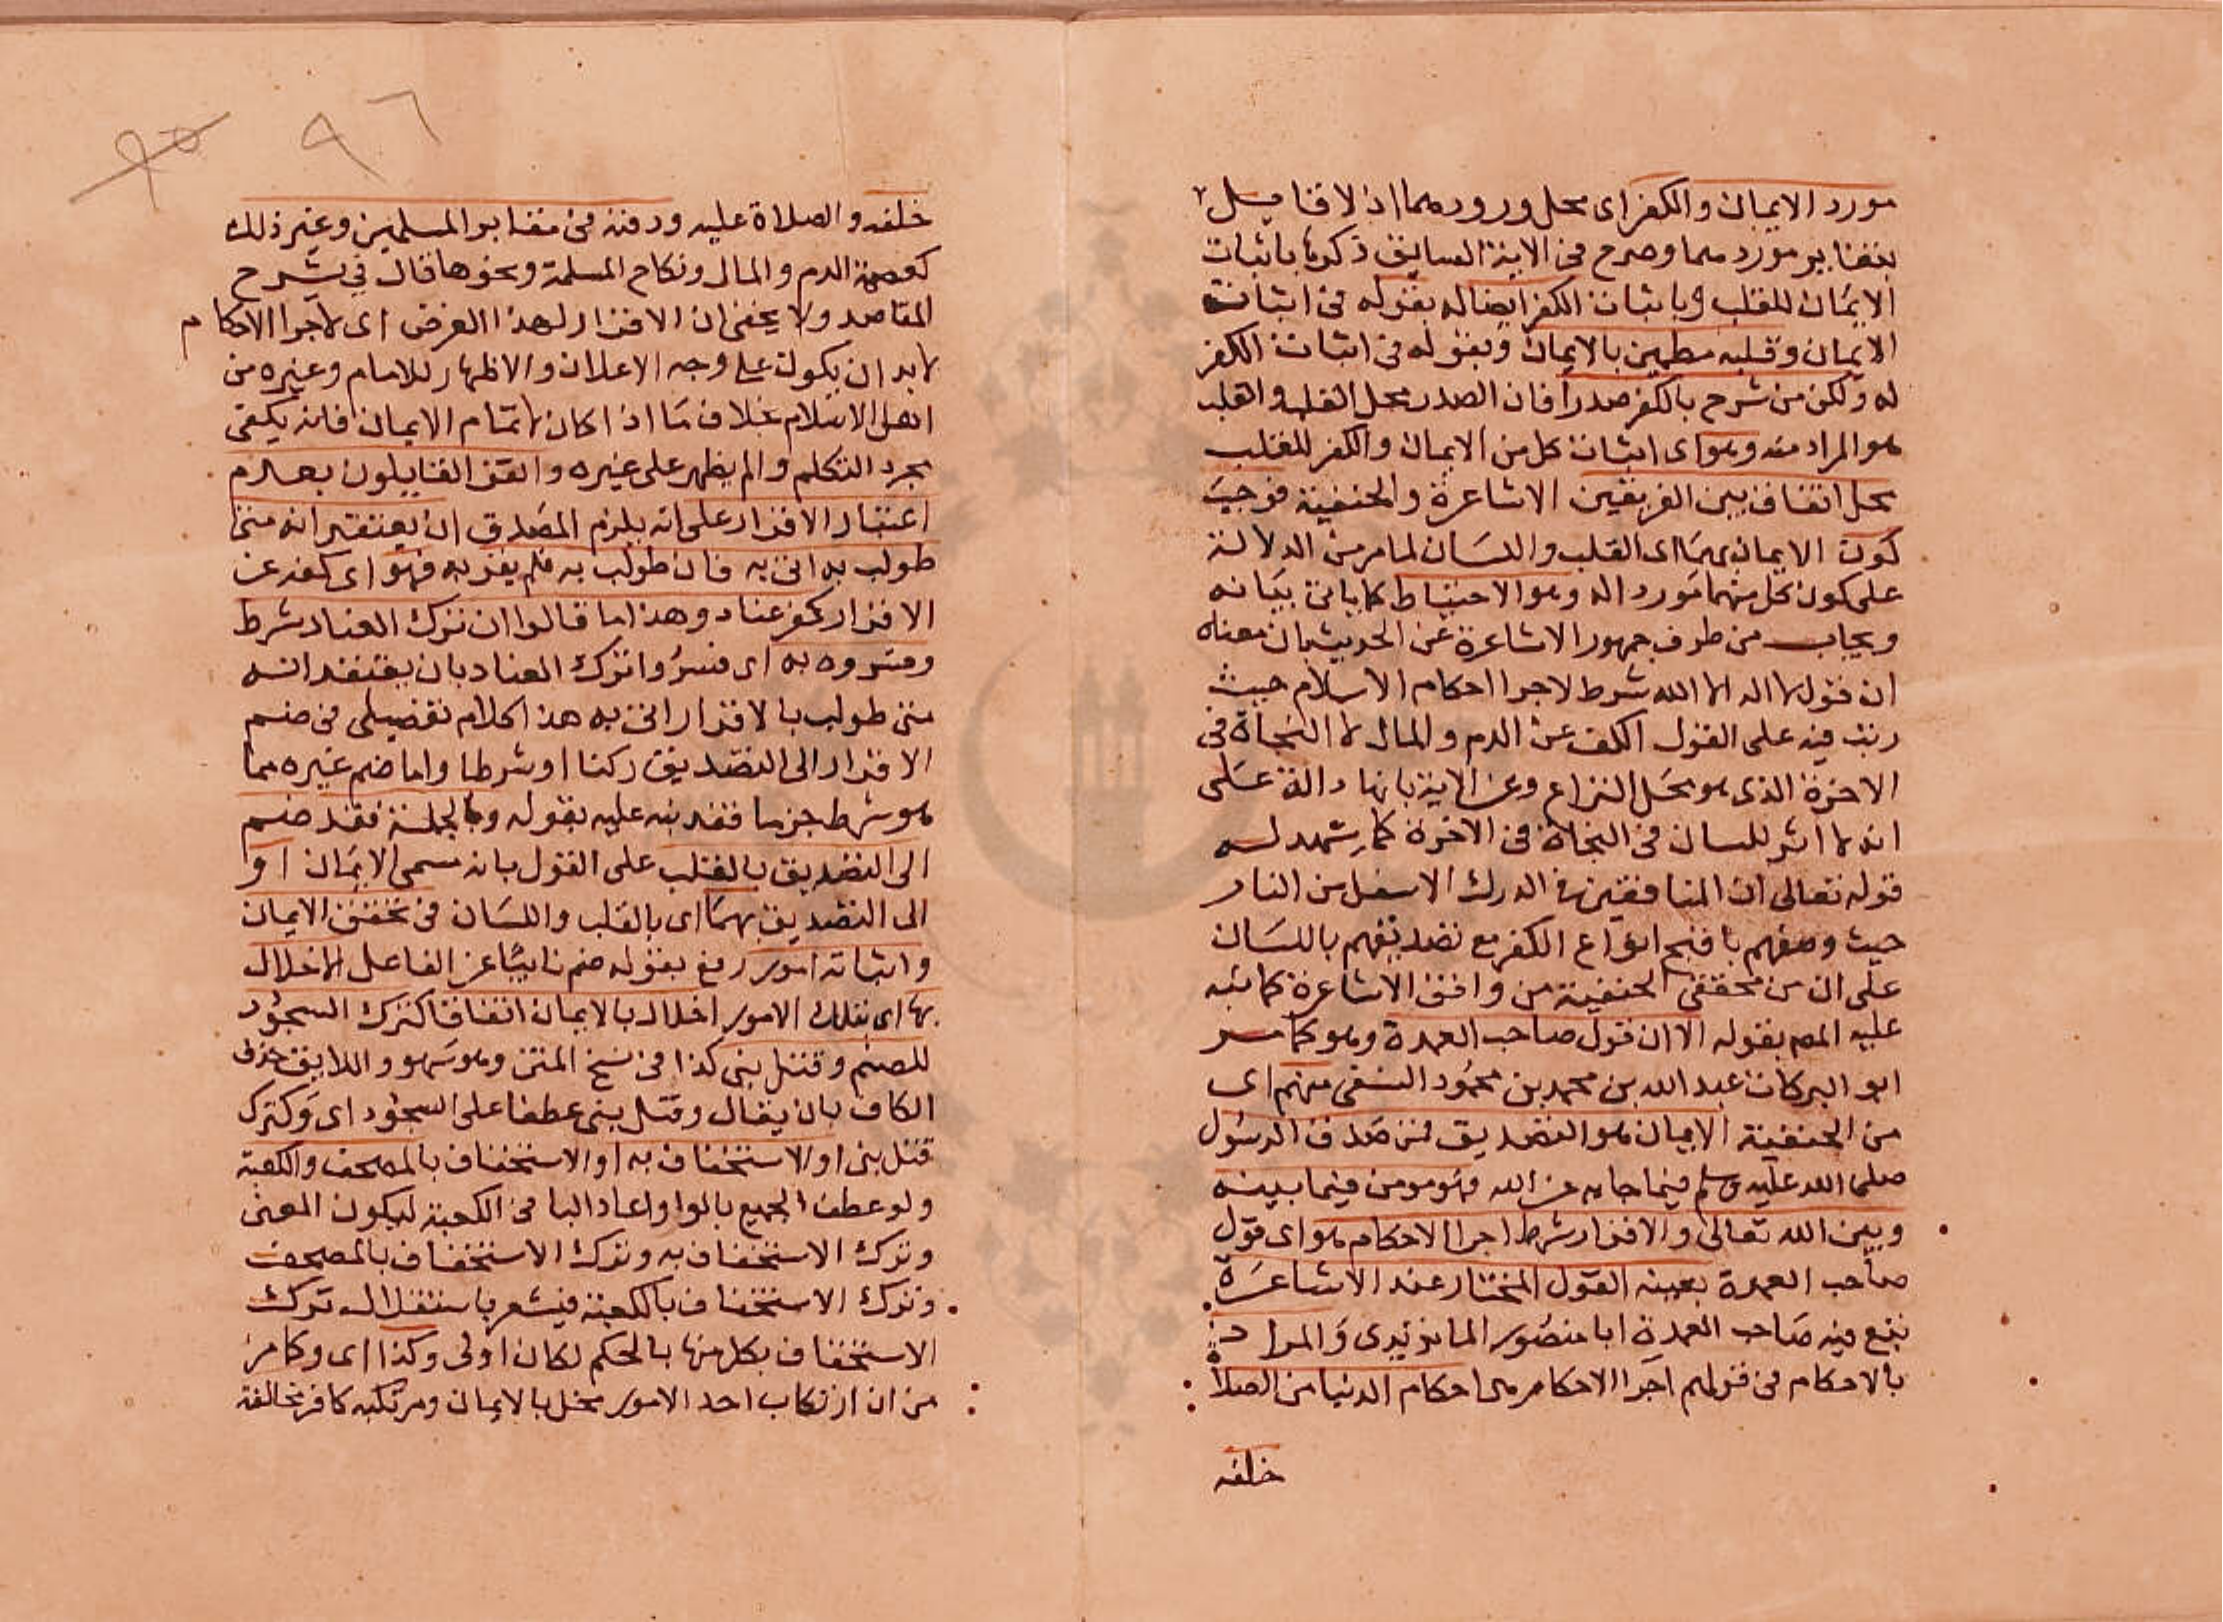 مورد الايمان والكفر اى محل ورودهما اذ لا قايل
بتغاير موردهما وصرح فى الاية السابق ذكرها باثبات
الايمان للقلب وباثبات الكفر ايضا له بقوله فى اثبات
الايمان وقلبه مطمين بالايمان وبقوله فى اثبات الكفر
له ولكن من شرح بالكفر صدرا فان الصدر محل القلب والقلب
هو المراد منه وهو اى اثبات كل من الايمان والكفر للقلب
محل اتفاق بين الفريقين الاشاعرة والحنفية فوجب
كون الايمان بهما اى القلب واللسان لما مر من الدلالة
على كون كل منهما موردا له وهو الاحتياط كما ياتى بيانه
ويجاب من طرف جمهور الاشاعرة عن الحديث بان معناه
ان قول لا اله الا الله شرط لاجرا احكام الاسلام حيث
رتب فيه على القول الكف عن الدم والمال لا النجاة فى
الاخرة الذى هو محل النزاع وعن الاية بانها دالة على
انه لا اثر للسان فى النجاة فى الاخرة كما يشهد له
قوله تعالى ان المنافقين فى الدرك الاسفل من النار
حيث وصفهم باقبح انواع الكفر مع تصديقهم باللسان
على ان من محققى الحنفية من وافق الاشاعرة كما نبه
عليه المص بقوله الا ان قول صاحب العمدة وهو كما مر
ابو البركات عبد الله بن محمد بن محمود النسفى منهم اى
من الحنفية الايمان هو التصديق فمن صدق الرسول
صلى الله عليه وسلم فيما جا به عن الله فهو مومن فيما بينه
وبين الله تعالى والاقرار شرط اجرا الاحكام هو اى قول
صاحب العمدة بعينه القول المختار عند الاشاعرة
تبع فيه صاحب العمدة ابا منصور الماتريدى والمراد
بالاحكام فى قولهم اجرا الاحكام هى احكام الدنيا من الصلاة
خلفه
٩٥ ٩٦
خلفه والصلاة عليه ودفنه فى مقابر المسلمين وغير ذلك
كعصمة الدم والمال ونكاح المسلمة ونحوها قال فى شرح
المقاصد ولا يخفى ان الاقرار لهذا الغرض اى لاجرا الاحكام
لابد ان يكون على وجه الاعلان والاظهار للامام وغيره من
اهل الاسلام بخلاف ما اذا كان لاتمام الايمان فانه يكفى
مجرد التكلم وان لم يظهر على غيره واتفق القايلون بعدم
اعتبار الاقرار على انه يلزم المصدق ان يعتقد انه متى
طولب به اتى به فان طولب به فلم يقر به فهو اى كفه عن
الاقرار كفر عناد وهذا ما قالوا ان ترك العناد شرط
وفسروه به اى فسروا ترك العناد بان يعتقد انه
متى طولب بالاقرار اتى به هذا كلام تفصيلى فى ضم
الاقرار الى التصديق ركنا او شرطا واما ضم غيره مما
هو شرط جزما فقد نبه عليه بقوله وبالجملة فقد ضم
الى التصديق بالقلب على القول بانه مسمى الايمان او
الى التصديق بهما اى بالقلب واللسان فى تحقق الايمان
واثباته امور رفع بقوله ضم نايبا عن الفاعل الاخلال
بها اى بتلك الامور اخلال بالايمان اتفاقا كترك السجود
للصنم وقتل نبى كذا فى نسخ المتن وهو سهو واللايق حذف
الكاف بان يقال وقتل نبى عطفا على السجود اى وكترك
قتل نبى او الاستخفاف به او الاستخفاف بالمصحف والكعبة
ولو عطف الجميع بالواو واعاد البا فى الكعبة ليكون المعنى
وترك الاستخفاف به وترك الاستخفاف بالمصحف
وترك الاستخفاف بالكعبة فيشعر باستقلال ترك
الاستخفاف بكل منها بالحكم لكان اولى وكذا اى وكما مر
من ان ارتكاب احد الامور مخل بالايمان ومرتكبه كافر مخالفة